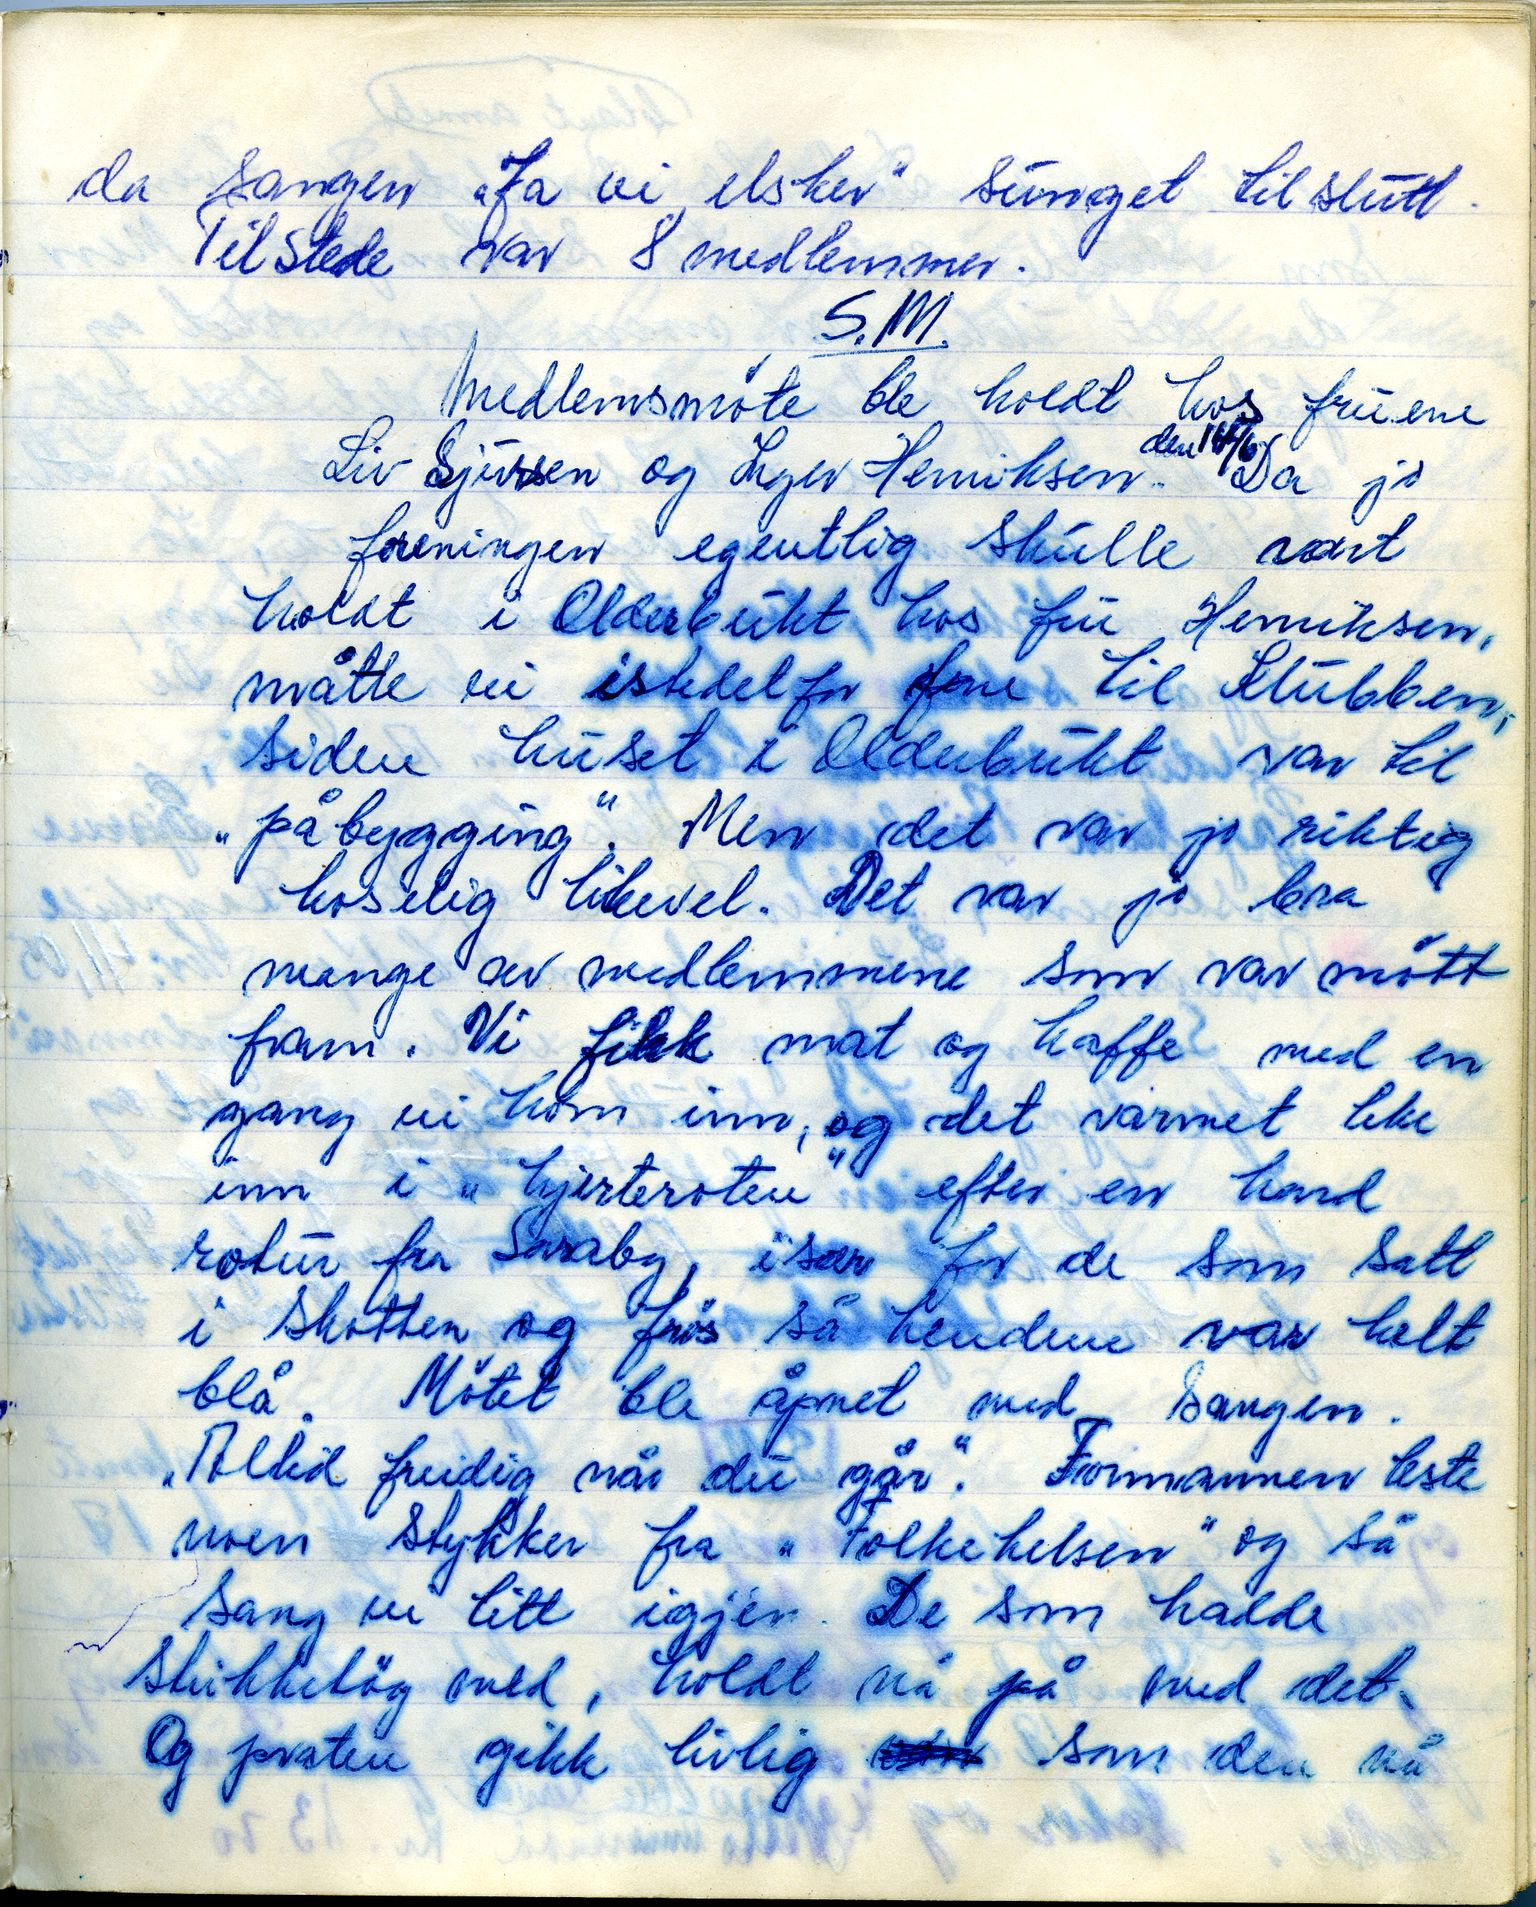 da sangen „Ja vi elsker" sunget til slutt.
Til stede var 8 medlemmer.
S.M.
Medlemsmöte ble holdt hos fruene
Liv Sjursen og Inger Henriksen den 14/6. Da jo
foreningen egentlig skulle vært
holdt i Olderbukt hos fru Henriksen,
måtte vi istedet for fare til Klubben,
siden huset i Olderbukt var til
„påbygging". Men det var jo riktig
koselig likevel. Det var jo bra
mange av medlemmene som var mött
fram. Vi fikk mat og kaffe med en
gang vi kom inn, og det varmet like
inn i „hjerteroten" efter en hard
rotur fra Saraby, især for de som satt
i skotten og frös så hendene var helt
blå. Mötet ble åpnet med sangen.
„Alltid freidig når du går". Formannen leste
noen stykker fra „Folkehelsen" og så
sang vi litt igjen. De som hadde
strikketög med, holdt nå på med det.
Og praten gikk livlig som den nå